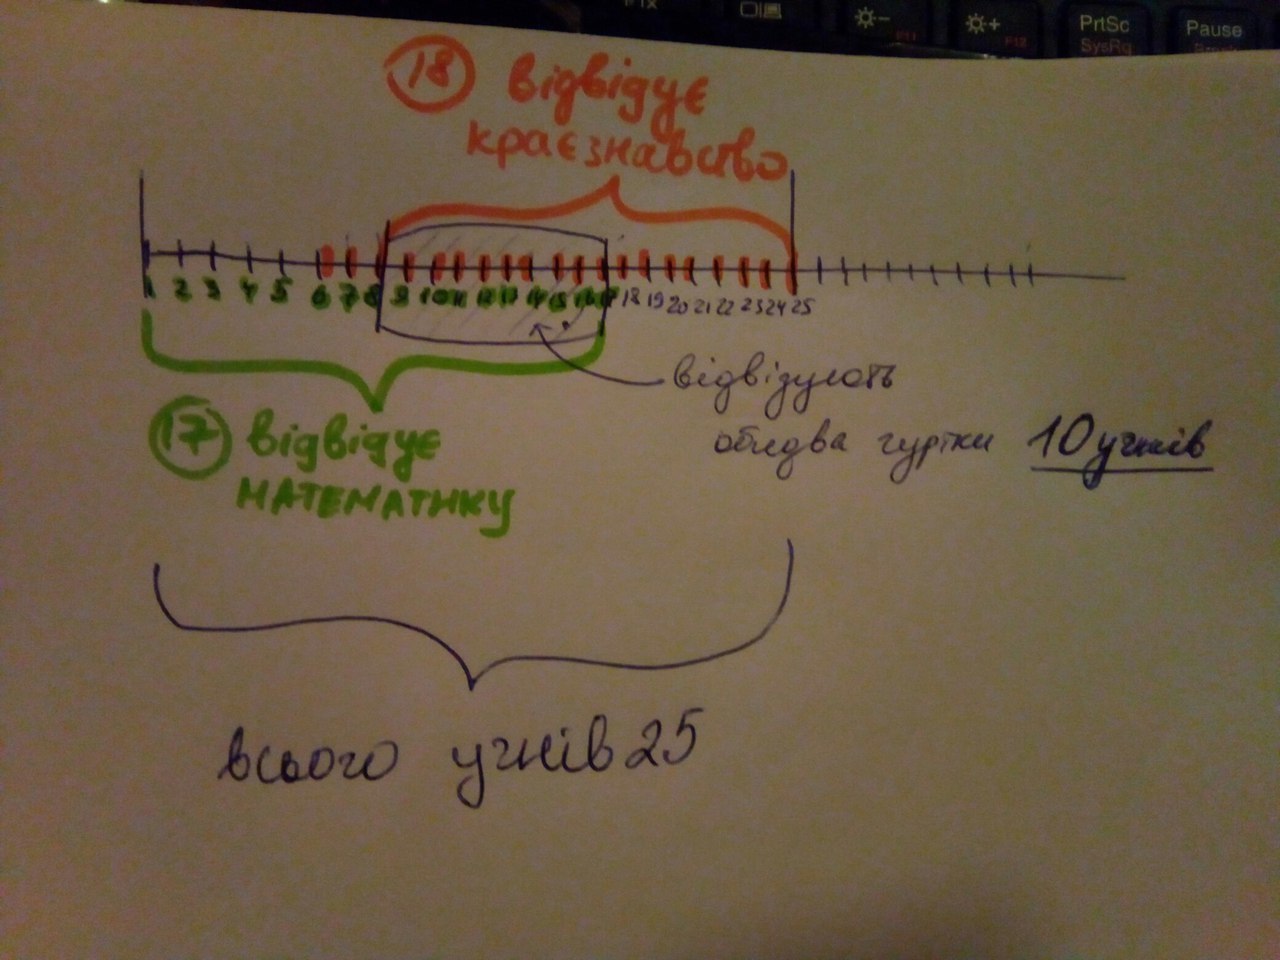 PrtSc
SysRq
Pause
F11
F12
18 відвідує
краєзнавство
1 2 3 4 5 6 7 8 9 10 11 12 13 14 15 16 17 18 19 20 21 22 23 24 25
відвідують
обидва гуртки 10 учнів
17 відвідує
МАТЕМАТИКУ
всього учнів 25